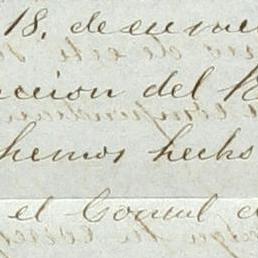 18. de
ccion del
hemos hecho
el Consul